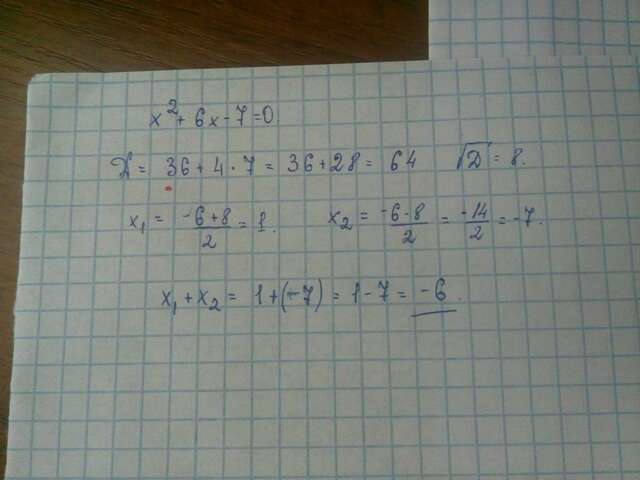 x² + 6x - 7 = 0.
D = 36 + 4 · 7 = 36 + 28 = 64 √D = 8.
x₁ = (-6 + 8)/2 = 1. x₂ = (-6 - 8)/2 = -14/2 = -7.
x₁ + x₂ = 1 + (-7) = 1 - 7 = -6.